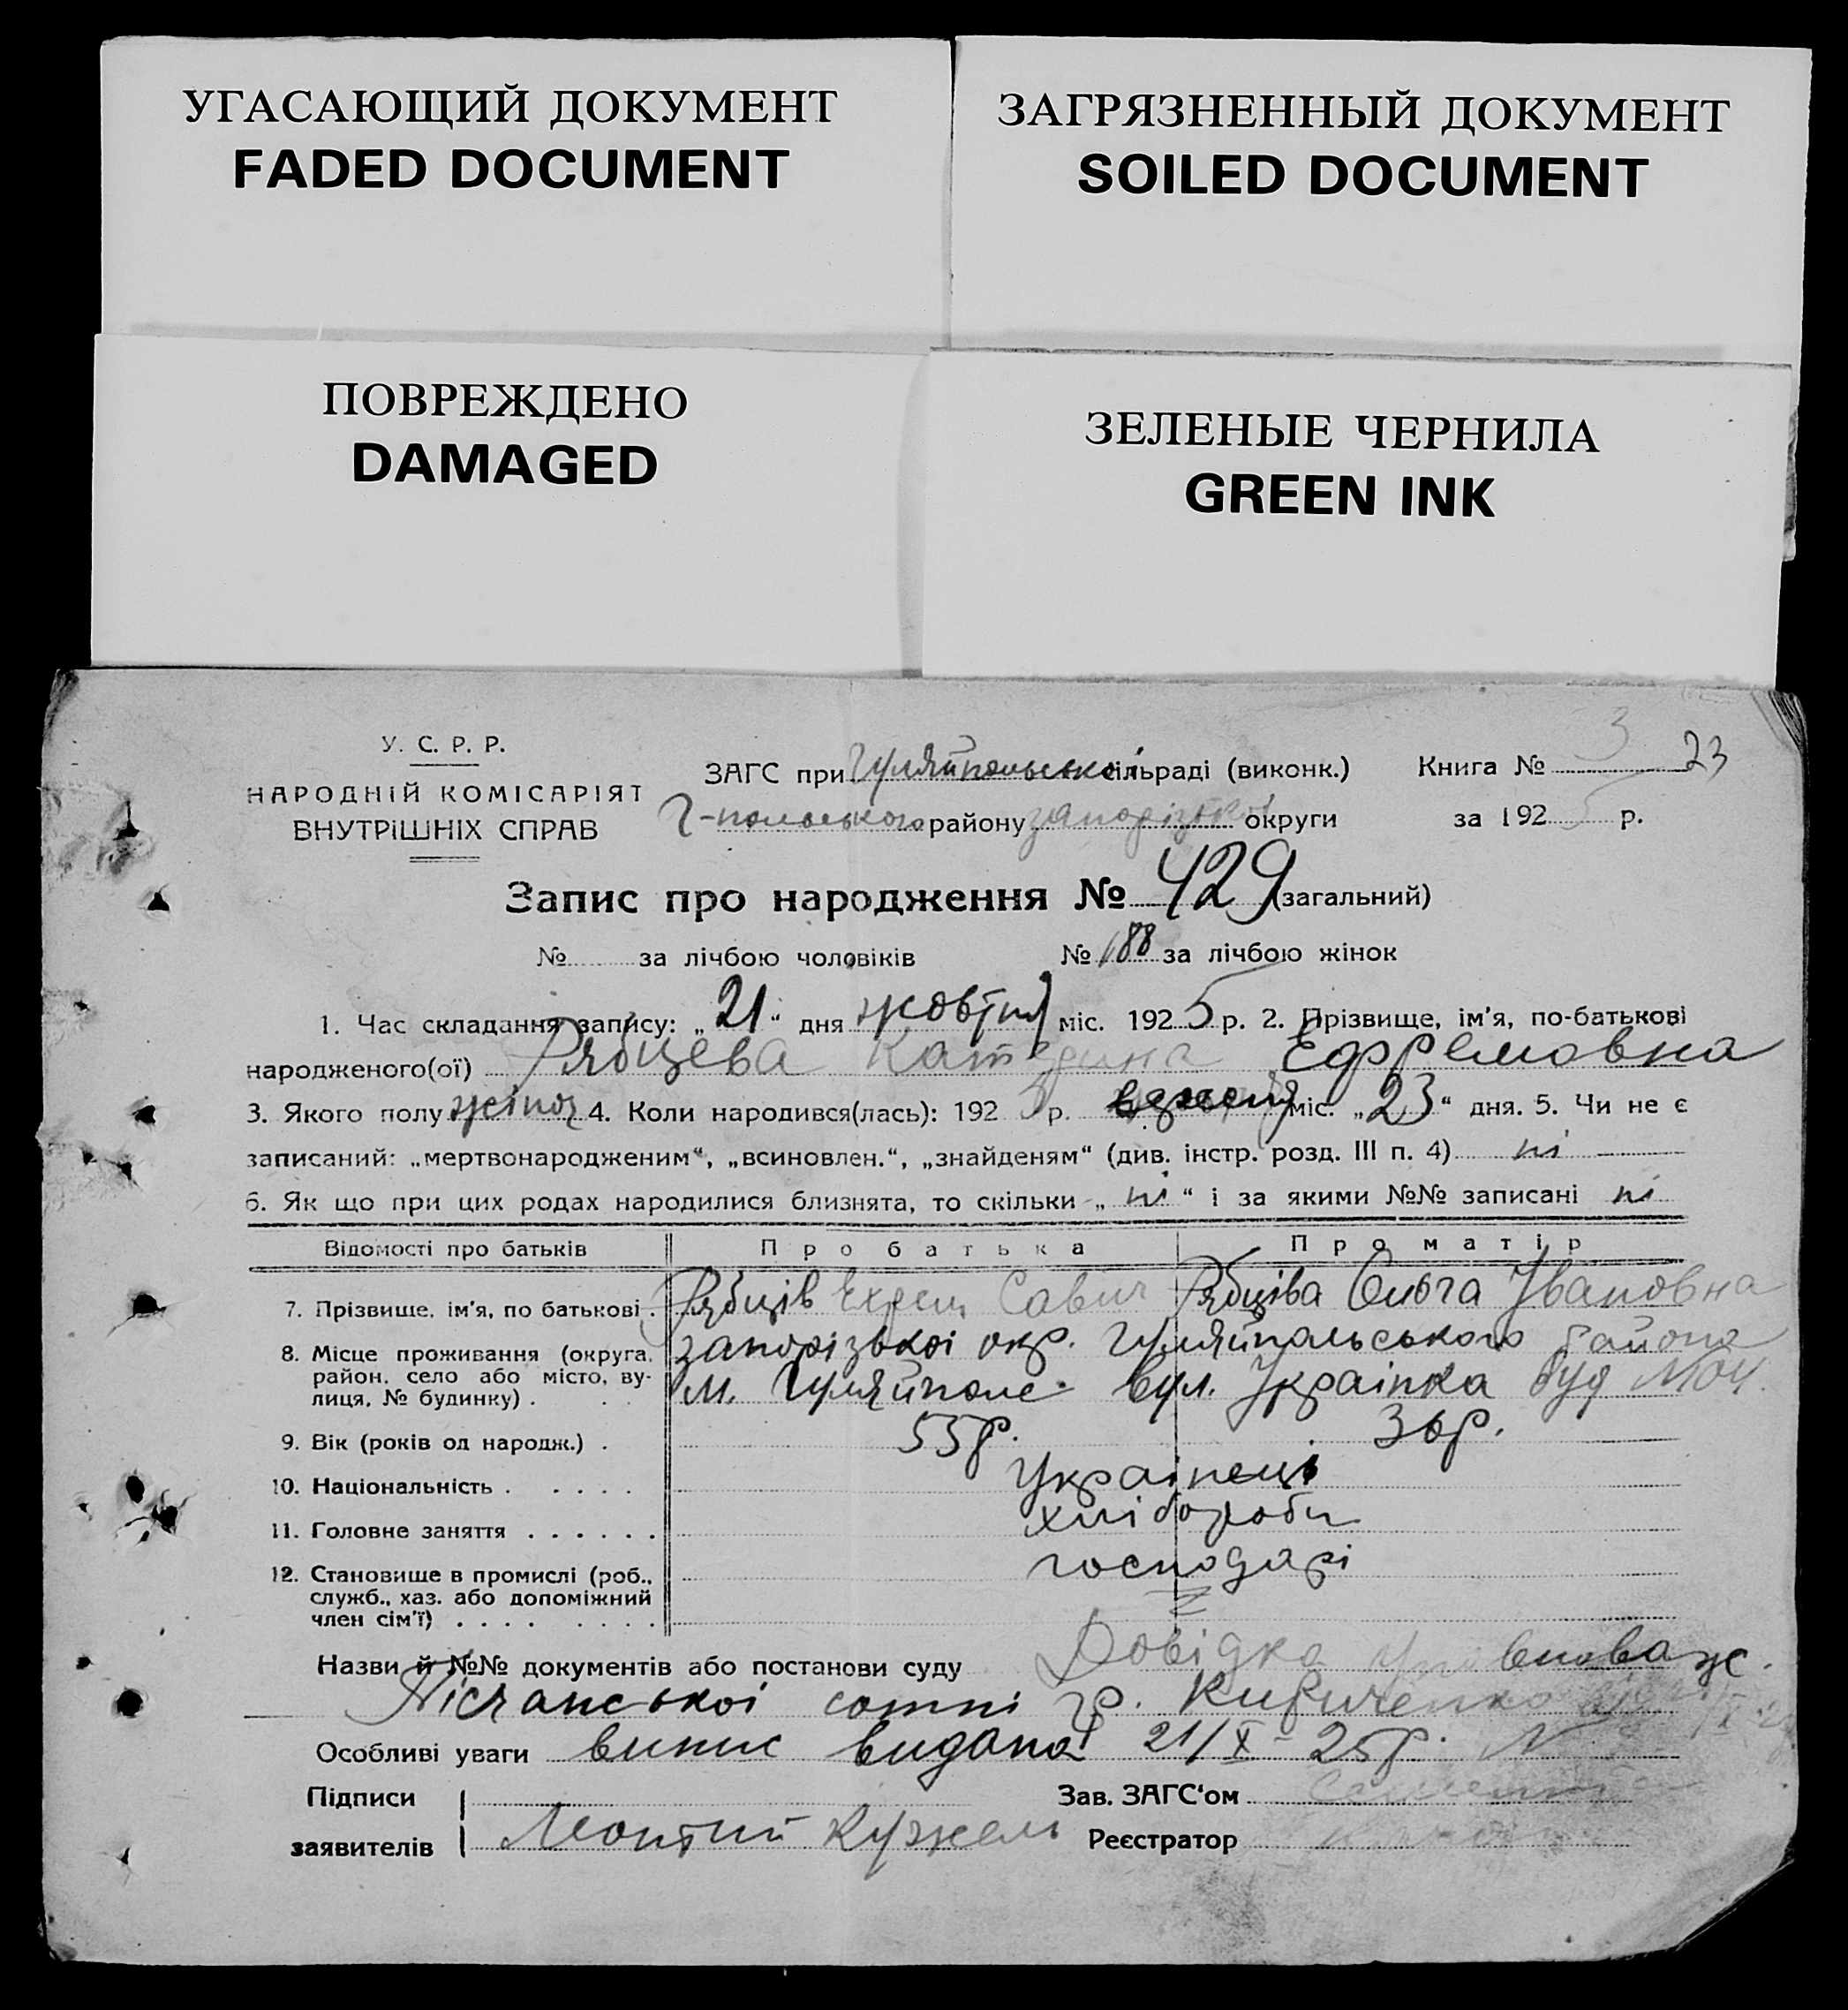 УГАСАЮЩИЙ ДОКУМЕНТ
FADED DOCUMENT
ЗАГРЯЗНЕННЫЙ ДОКУМЕНТ
SOILED DOCUMENT
ПОВРЕЖДЕНО
DAMAGED
ЗЕЛЕНЫЕ ЧЕРНИЛА
GREEN INK
У. С. Р. Р.
НАРОДНІЙ КОМІСАРІЯТ
ВНУТРІШНІХ СПРАВ
ЗАГС при Гуляйпольськой сільраді (виконк.) Книга № 3 23
Г-польського району Запорізької округи за 1925 р.
Запис про народження № 429 (загальний)
№ за лічбою чоловіків № 188 за лічбою жінок
1. Час складання запису: „21“ дня жовтня міс. 1925 р. 2. Прізвище, ім'я, по-батькові
народженого(ої) Рябцева Катерина Ефремовна
3. Якого полу жіноч 4. Коли народився(лась): 1925 р. вересня міс. „23“ дня. 5. Чи не є
записаний: „мертвонародженим“, „всиновлен.“, „знайденям“ (див. інстр. розд. III п. 4) ні
6. Як що при цих родах народилися близнята, то скільки „ні“ і за якими №№ записані ні
Відомості про батьків Про батька Про матір
7. Прізвище, ім'я, по батькові. Рябців Ехрем Савич Рябціва Ольга Івановна
8. Місце проживання (округа, район, село або місто, вулиця, № будинку). запорізької окр. Гуляйпольського района
м. Гуляйполе вул. Українка буд
9. Вік (років од народж.) . 55р. 36р.
10. Національність . . . . . Українець
11. Головне заняття . . . . . . хлібороби
12. Становище в промислі (роб., служб., хаз. або допоміжний член сім'ї) . . . . . . . . господарі
Назви й №№ документів або постанови суду Довідка уповноваж.
Пісчанської сотні гр. Кириченко
Особливі уваги випис видана 21/X-25р. N
Підписи заявителів Леонтий Кужель
Зав. ЗАГС'ом
Реєстратор